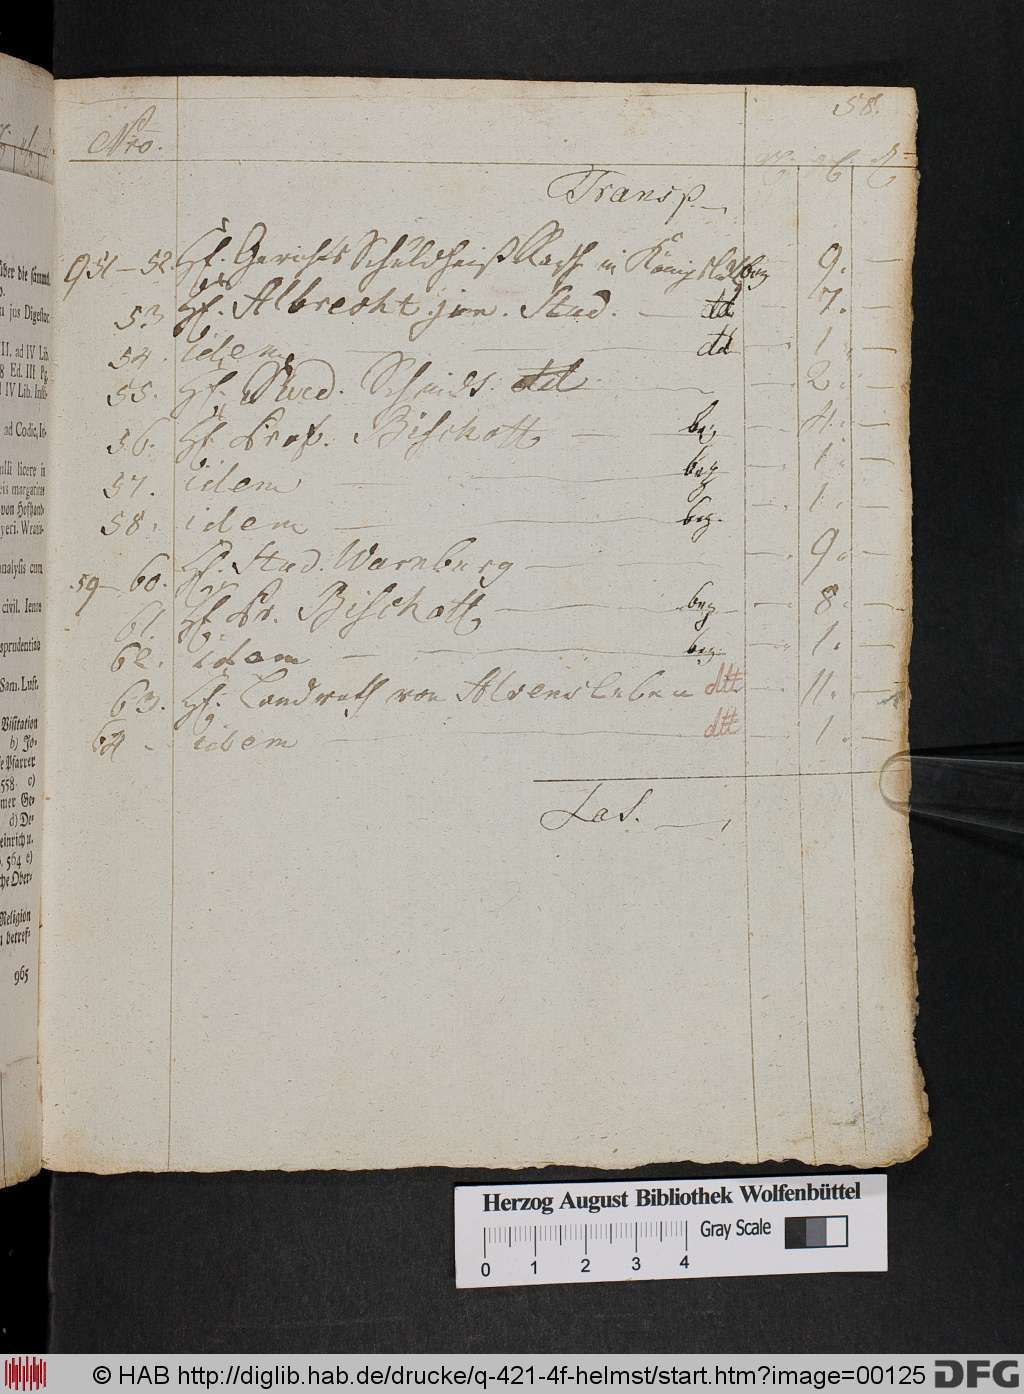 58.
Nro.
Transp.
951 – 52. H. Gerichts Schuldheiß in Königslutter bez — 9. —
53 H. Albrecht jun. Stud. — dd — 7. —
54. idem — dd — 1 —
55. H. Schmidt. dd — 2. —
56. H. Prof. Bischoff — bez — 4. —
57. idem — bez — 1. —
58. idem — bez. — 1. —
59 – 60. H. Stud. Warnburg — 9. —
61. H. Pr. Bischoff — bez — 8. —
62. idem — bez — 1. —
63. H. Landrath von Alvensleben dtt — 11. —
64 idem — dtt — 1. —
Lat.
über die
n jus Digestor.
II. ad IV Lib.
8 Ed. III Pg.
IV Lib. Insti-
ad Codic, In-
nulli licere in
margarinas
von
yeri.
analysis cum
civil. Ienae
sprudentiae
Sam. Luft.
Visitation
b) Jo-
Pfarrer
558 c)
mer Ge-
d) De-
einrich u.
564 e)
che Ober-
Religion
betref-
965
Herzog August Bibliothek Wolfenbüttel
Gray Scale
0 1 2 3 4
© HAB http://diglib.hab.de/drucke/q-421-4f-helmst/start.htm?image=00125
DFG